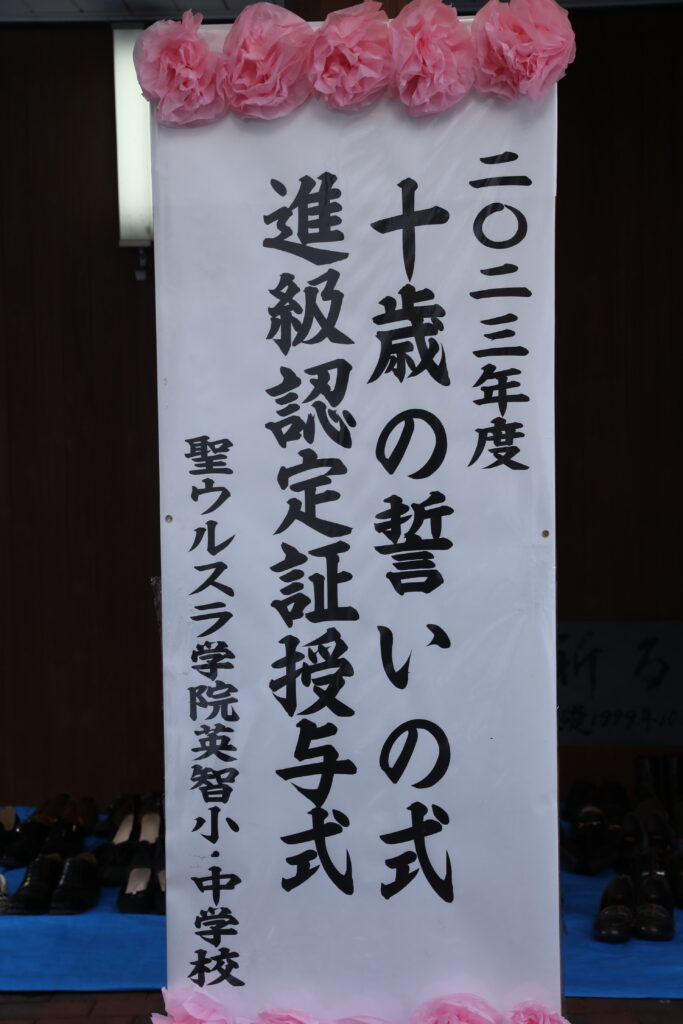 二〇二三年度
十歳の誓いの式
進級認定証授与式
聖ウルスラ学院英智小・中学校
祈る
1999.年.10